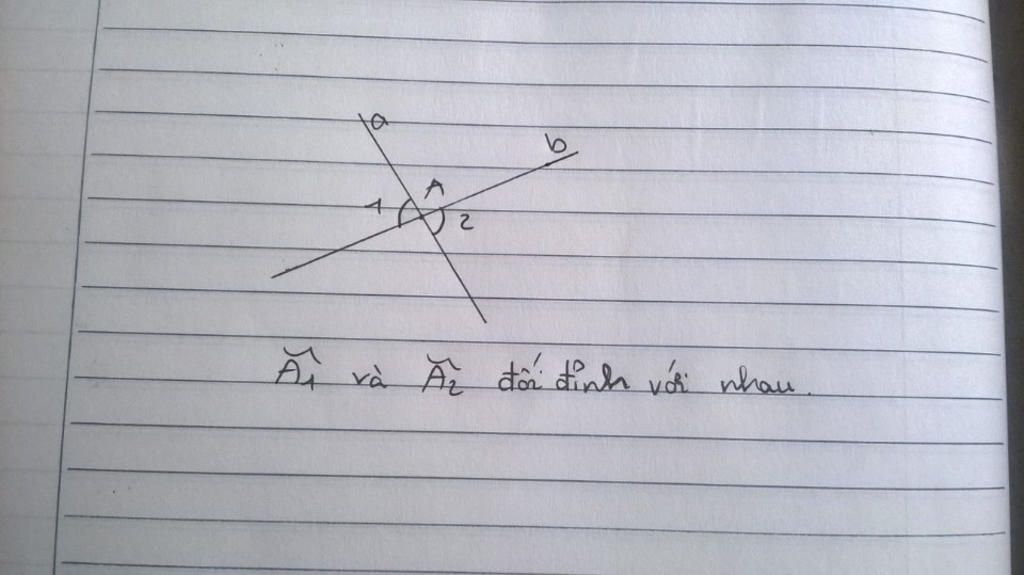 a
b
A
1
2
Â₁ và Â₂ đối đỉnh với nhau.